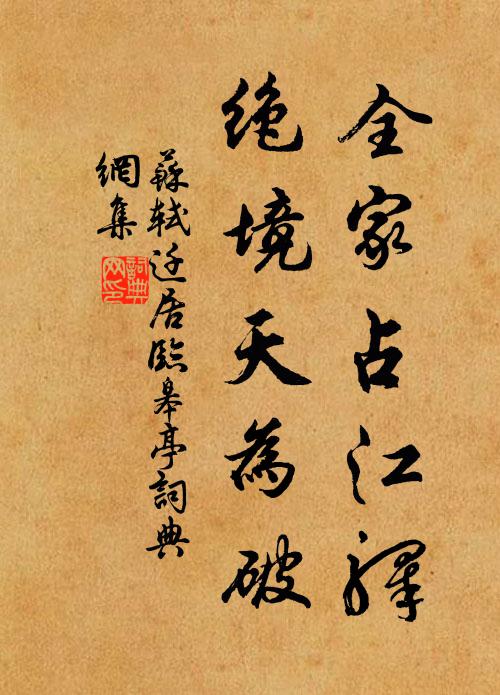 全家占江驛
絶境天為破
蘇軾遷居臨皋亭詞典
網集
詞典
网印